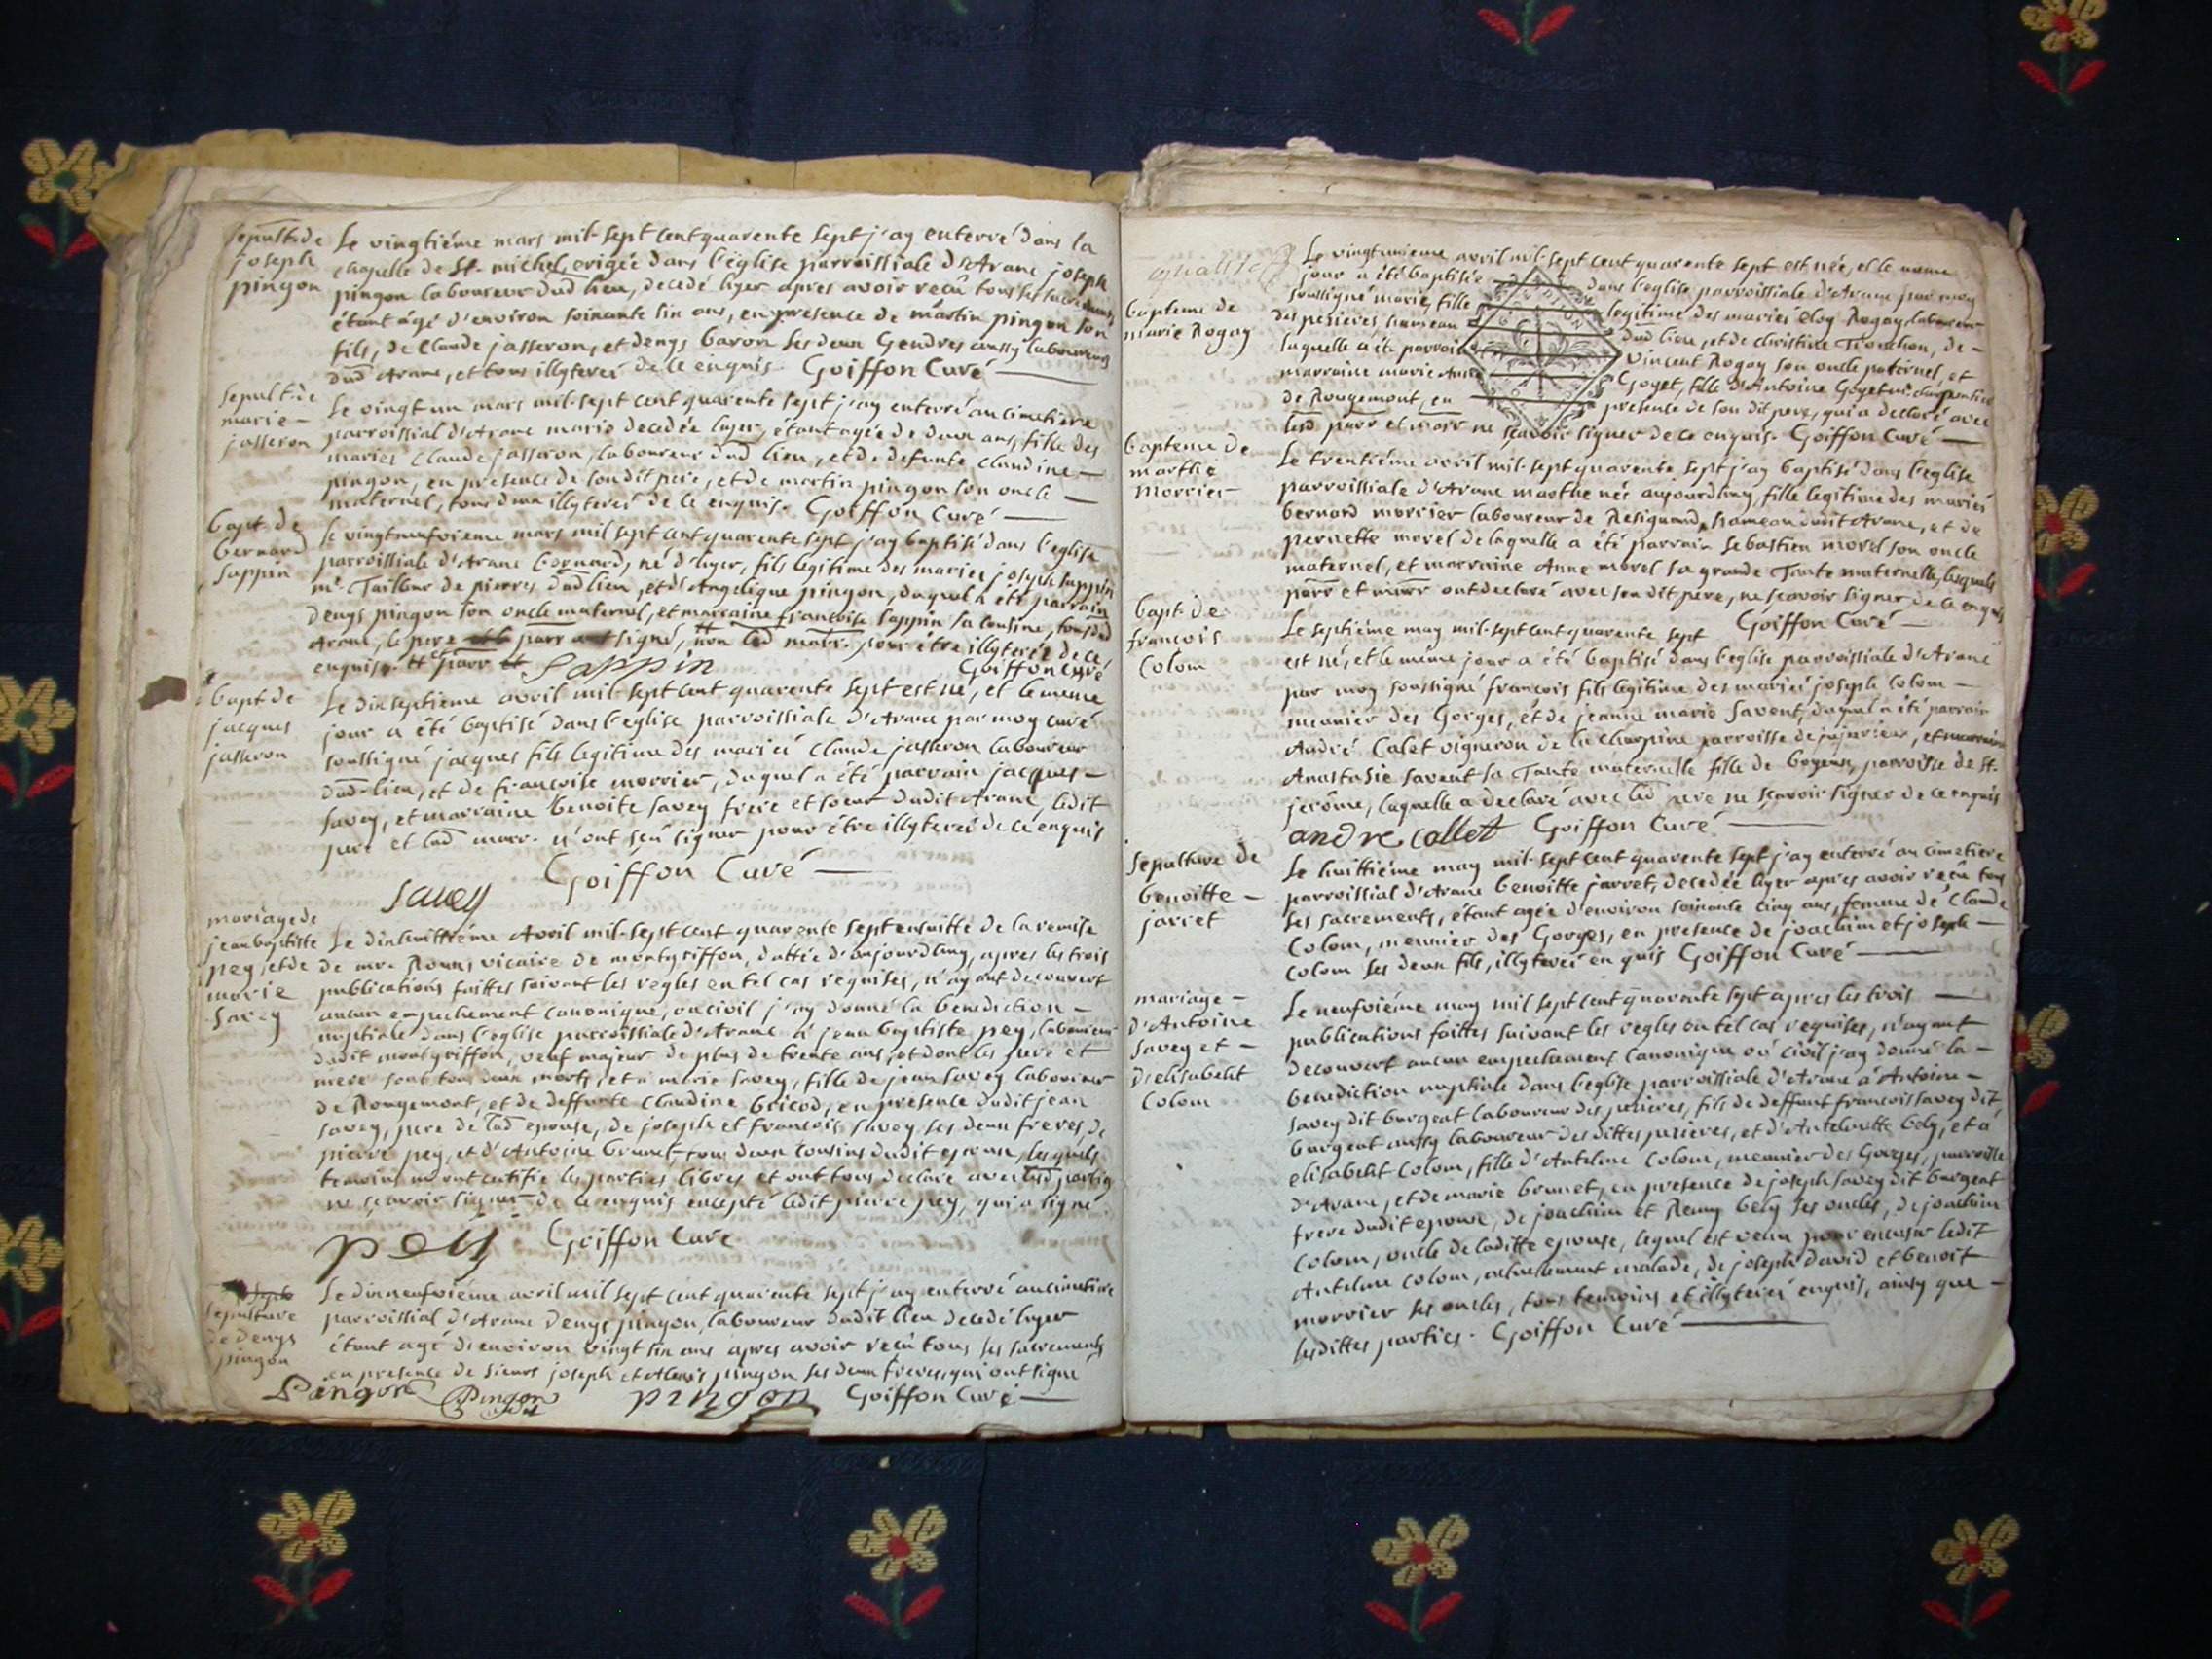 sepult. de
joseph
pingon
Le vingtiéme mars mil-sept cent quarente sept j'ay enterré dans la
chapelle de St. michel, erigée dans l'eglise parroissiale d'Aranc joseph
pingon laboureur dud lieu, decedé hyer apres avoir reçu tous ses sacremens
étant agé d'environ soixante six ans, en presence de martin pingon son
fils, de Claude jasseron, et denys baron ses deux Gendres aussy laboureurs
dud Aranc, et tous illyterés de ce enquis. Goiffon Curé
sepult. de
marie
jasseron
Le vingt un mars mil-sept cent quarente sept j'ay enterré au cimetiere
parroissial d'Aranc marie decedée hyer, étant agée de deux ans, fille des
mariés Claude jasseron, laboureur dud lieu, et de defunte Claudine
pingon, en presence de son dit pere, et de martin pingon son oncle
maternel, tous deux illyterés de ce enquis. Goiffon Curé
bapt. de
bernard
sappin
le vingtneufvieme mars mil sept cent quarente sept j'ay baptisé dans l'eglise
parroissiale d'Aranc bernard, né d'hyer, fils legitime des mariés joseph sappin
mr. Tailleur de pierres dud lieu, et d'Angelique pingon, duquel a été parrain
denys pingon son oncle maternel, et marraine francoise sappin sa cousine, tous dud
Aranc, le pere parr signé, non lad marr. pour être illyterée de ce
enquis. et parr
sappin
Goiffon Curé
bapt de
jacques
jasseron
Le dixseptieme avril mil-sept cent quarente sept est né, et le meme
jour a été baptisé dans l'eglise parroissiale d'Aranc par moy curé
soussigné jacques fils legitime des mariés Claude jasseron laboureur
dud-lieu, et de francoise morrier, duquel a été parrain jacques
savey, et marraine benoite savey frere et soeur dudit Aranc, ledit
pere et lad marr. n'ont sçu signer pour être illyterés de ce enquis
Goiffon Curé
savey
mariage de
jean baptiste
pey, et de
marie
savey
Le dixhuittiéme Avril mil-sept cent quarente sept ensuitte de la remise
de mre. Roux vicaire de montgriffon, dattée d'aujourdhuy, apres les trois
publications faittes suivant les regles en tel cas requises, n'ayant decouvert
aucun empechement canonique, ou civil j'ay donné la benediction
nuptiale dans l'eglise parroissiale d'Aranc à jean baptiste pey, laboureur
dudit montgriffon, veuf majeur de plus de trente ans, et dont les pere et
mere sont tous deux morts, et à marie savey, fille de jean savey laboureur
de Rougemont, et de deffunte Claudine bricod, en presence dudit jean
savey, pere de lad epouse, de joseph et francois savey ses deux freres, de
pierre pey, et d'Antoine brunet tous deux cousins dudit epoux, lesquels
temoins m'ont certifié les parties libres et ont tous declaré avec lesd parties
ne sçavoir signer de ce enquis excepté ledit pierre pey, qui a signé.
pey
Goiffon Curé
sepulture
de denys
pingon
Le dixneufviéme avril mil sept cent quarente sept j'ay enterré au cimetiere
parroissial d'Aranc Denys pingon, laboureur dudit lieu decedé hyer
étant agé d'environ vingt six ans apres avoir reçu tous ses sacrements
en presence de sieurs joseph et pingon ses deux freres, qui ont signé
Pingon
Pingon
pingon
Goiffon Curé
bapteme de
marie Rogay
Le vingtunieme avril mil-sept cent quarente sept est née, et le meme
jour a été baptisée dans l'eglise parroissiale d'Aranc par moy
soussigné marie, fille legitime des mariés eloy Rogay, laboureur
des pezieres hameau dud lieu, et de christine Tronchon, de
laquelle a été parrain Vincent Rogay son oncle paternel, et
marraine marie Anne Goyet, fille d'Antoine Goyet mr. charpentier
de Rougemont, en presence de son dit pere, qui a declaré avec
lesd parr et marr ne sçavoir signer de ce enquis. Goiffon Curé
bapteme de
marthe
morrier
Le trentiéme avril mil-sept quarente sept j'ay baptisé dans l'eglise
parroissiale d'Aranc marthe née aujourdhuy, fille legitime des mariés
bernard morrier laboureur de Resignand, hameau dudit Aranc, et de
pernette morel de laquelle a été parrain sebastien morel son oncle
maternel, et marraine Anne morel sa grande Tante maternelle, lesquels
parr et marr ont declaré avec son dit pere, ne sçavoir signer de ce enquis
Goiffon Curé
bapt. de
francois
Colom
Le septiéme may mil-sept cent quarente sept
est né, et le méme jour a été baptisé dans l'eglise parroissiale d'Aranc
par moy soussigné francois fils legitime des mariés joseph Colom
meunier des Gorges, et de jeanne marie savent, duquel a été parrain
André Calet vigneron de la Charpine parroisse de jujurieux, et marraine
Anastasie savent sa Tante maternelle fille de boyeux, parroisse de St.
jerôme, laquelle a declaré avec led pere ne sçavoir signer de ce enquis
andre collet
Goiffon Curé
sepulture de
benoitte
jarret
Le huittiéme may mil-sept cent quarente sept j'ay enterré au cimetiere
parroissial d'Aranc benoitte jarret, decedée hyer apres avoir reçu tous
ses sacrements, étant agée d'environ soixante cinq ans, femme de Claude
Colom, meunier des Gorges, en presence de joachim et joseph
Colom ses deux fils, illyterés enquis Goiffon Curé
mariage
d'Antoine
savey et
d'elisabeht
Colom
Le neufviéme may mil sept cent quarente sept apres les trois
publications faittes suivant les regles en tel cas requises, n'ayant
decouvert aucun empechement canonique ou civil j'ay donné la
benediction nuptiale dans l'eglise parroissiale d'Aranc à Antoine
savey dit burgeat laboureur des pezieres, fils de deffunt francois savey dit
burgeat aussy laboureur des dittes pezieres, et d'Antelmette bely, et à
elisabeht Colom, fille d'Antelme Colom, meunier des Gorges, parroisse
d'Aranc, et de marie brunet, en presence de joseph savey dit burgeat
frere dudit epoux, de joachim et Remy bely ses oncles, de joachim
Colom, oncle de laditte epouse, lequel est venu pour excuser ledit
Antelme Colom, actuellement malade, de joseph david et benoit
morrier ses oncles, tous temoins et illyterés enquis, ainsy que
lesdittes parties. Goiffon Curé